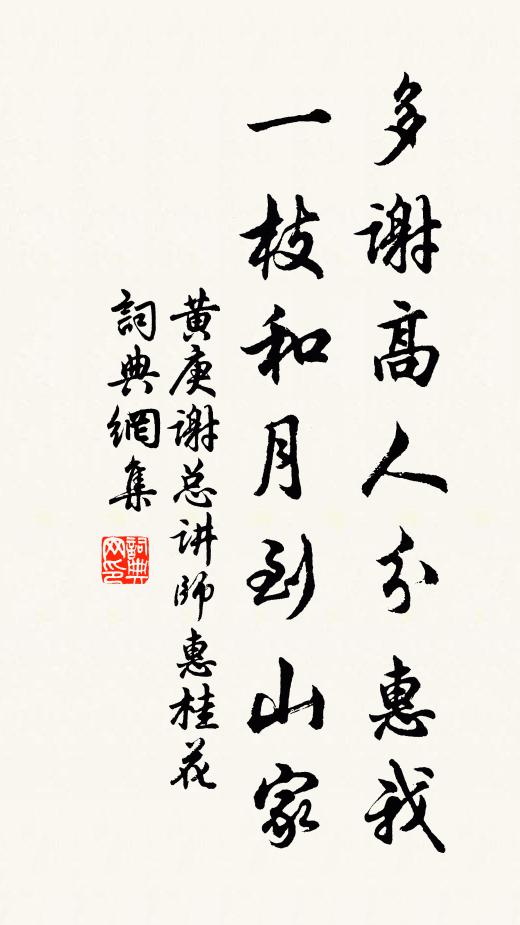 多謝高人分惠我
一枝和月到山家
黃庚谢总讲師惠桂花
詞典網集
詞典网印